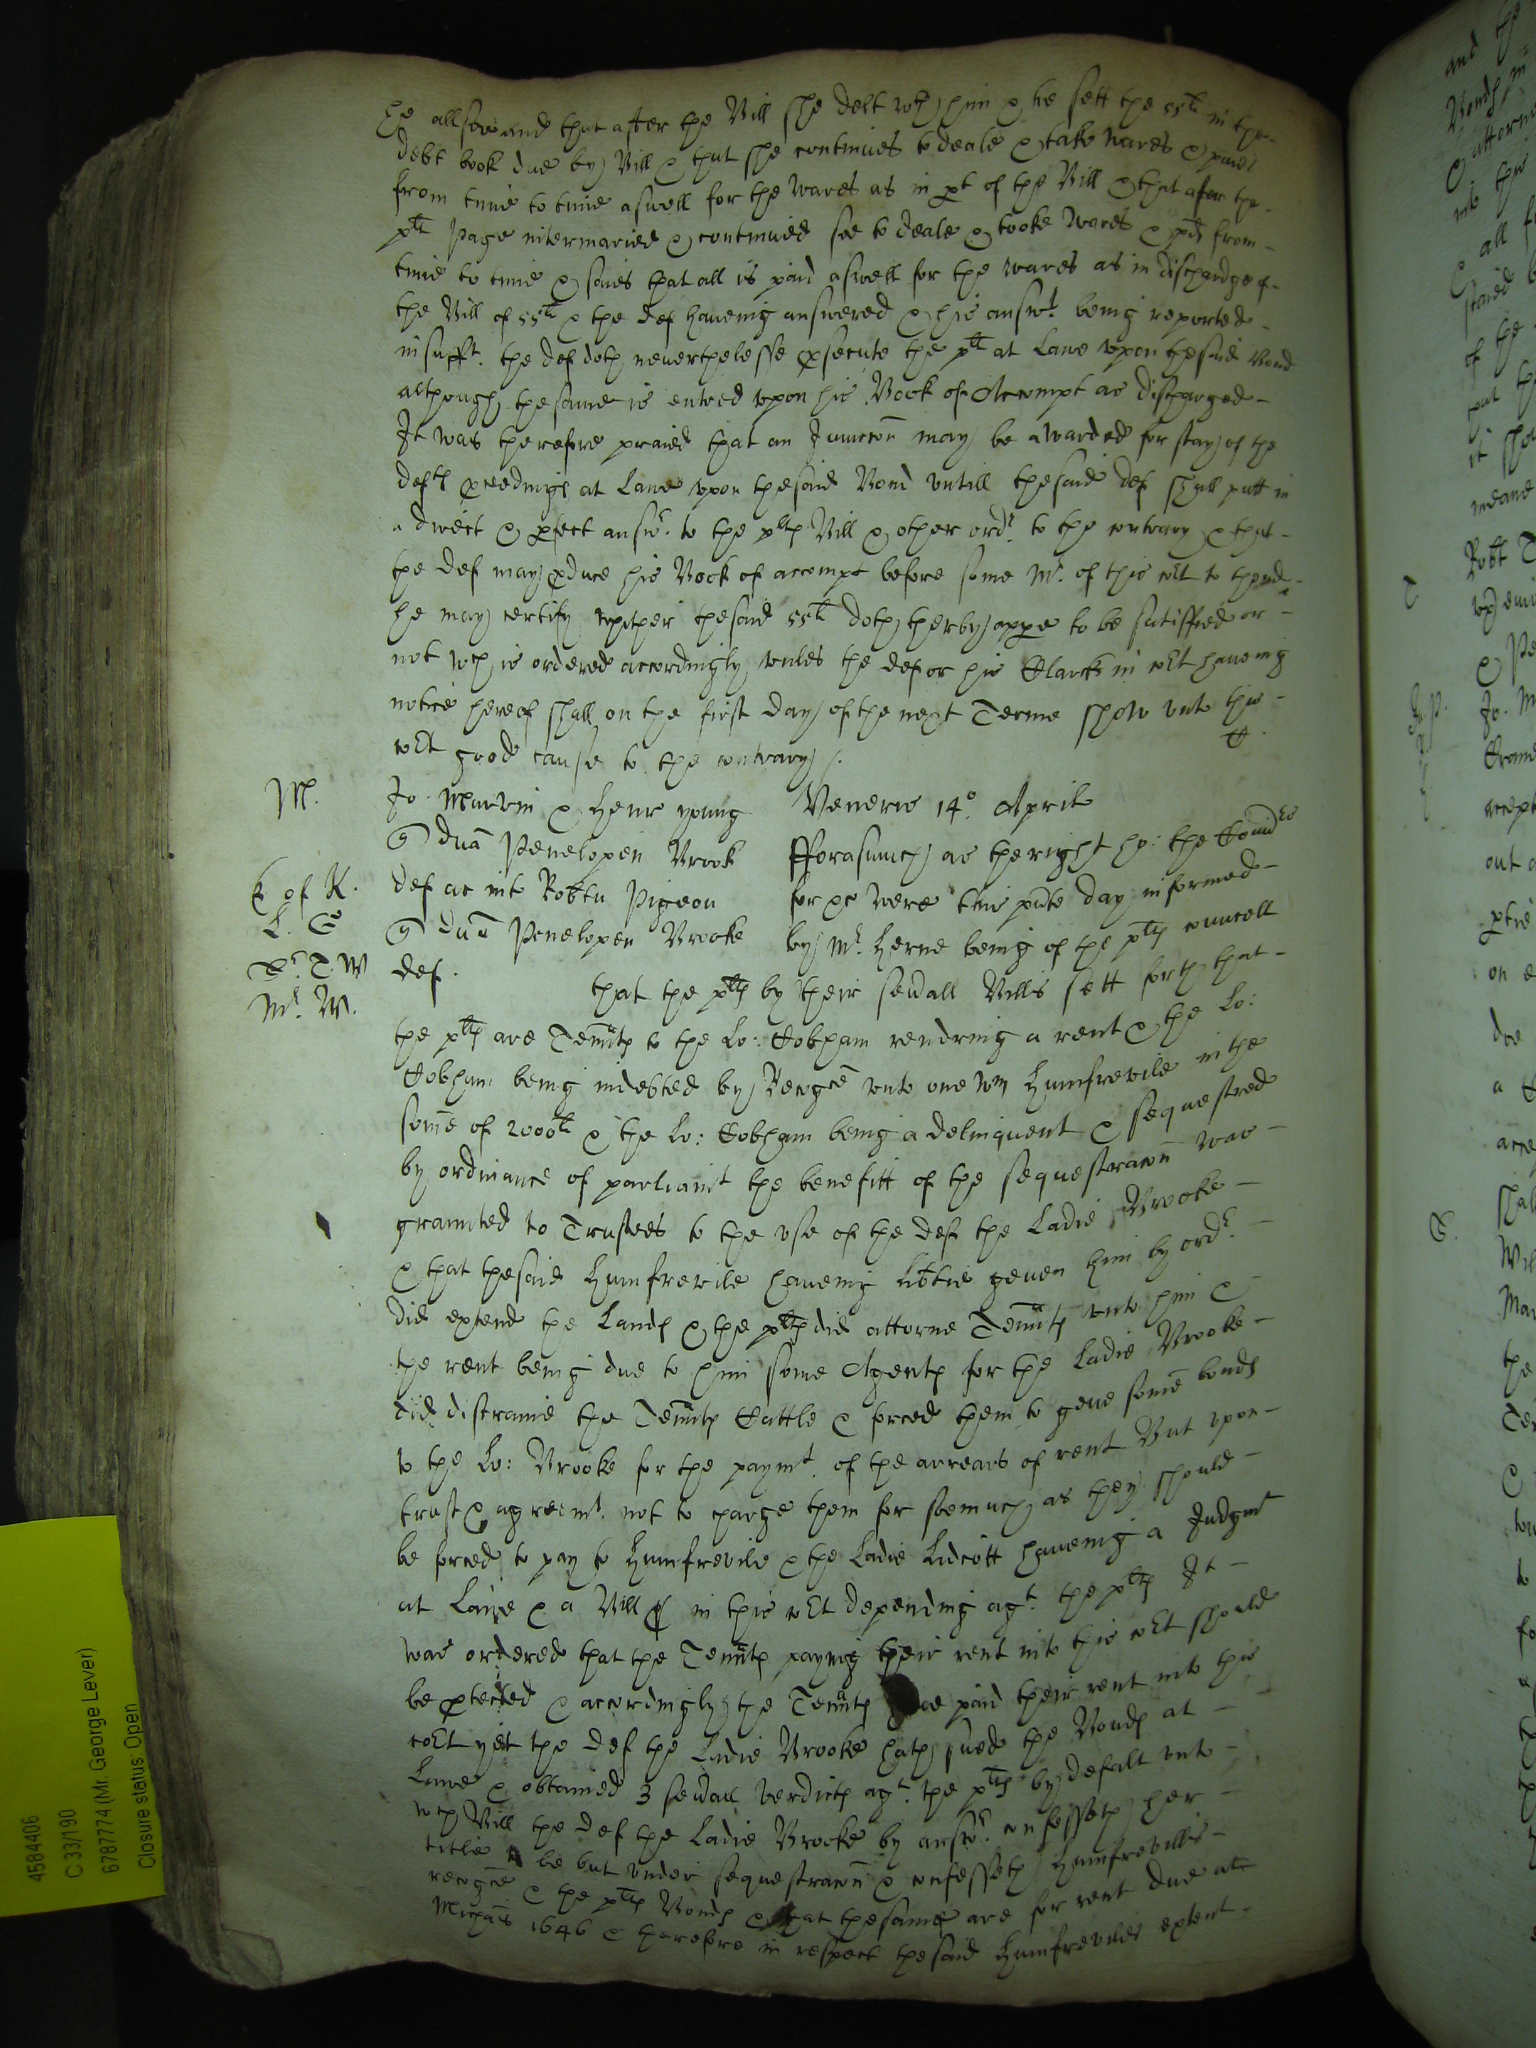 he allsoe and that after the Bill she delt wth him & he sett the 55li in the
debt book due by Bill & that she continues to deale & take wares & paies
from time to time aswell for the wares as in pt of the Bill & that after the
plt Page intermaried & continued soe to deale & tooke wares & pd from
time to time & saies that all is paid aswell for the wares as in dischardge of
the Bill of 55li & the def haveing answered & his answr being reported
insufft. the def doth neverthelesse psecute the plt at Lawe upon the said Bond
although the same is entred upon his Book of Accompt as discharged
It was therefore praied that an Iniuncon may be awarded for stay of the
defts pceedings at Lawe upon the said Bond untill the said def shall putt in
a direct & pfect answr. to the plts Bill & other ordr. to the contrary & that
the def may pduce his Book of accompt before some Mr. of this cort to thend
he may certify whither the said 55li doth therby appe to be satisfied or
not wch is ordered accordingly unles the def or his Clarck in cort haveing
notice hereof shall on the first day of the next Terme shew unto this
cort good cause to the contrary /.
M. Jo. Marvin & Henr young Veneris 14o. Aprile
q dnam Penelopen Brook fforasmuch as the right ho: the Comrs
E of K. def ac inter Robtu Pigeon for &c were this pnte day informed
L. G q dnam Penelopen Brooke by Mr. Herne being of the plts councell
Sr. T. W def. that the plts by their sevall Bills sett forth that
Mr. W. the plts are Tennts to the Lo: Cobham rendring a rent & the Lo:
Cobham being indebted by Recogce unto one Wm Humfrevile in the
some of 2000li & the Lo: Cobham being a delinquent & sequestred
by ordinance of parliamt the benefitt of the sequestracon was
graunted to Trustees to the use of the def the Ladie Brooke
& that the said Humfrevile haveing libtie geven him by ordr.
did extend the Lands & the plts did attorne Tennts unto him &
the rent being due to him some Agents for the Ladie Brooke
did distraine the Tennts Cattle & forced them to geve some bonds
to the Lo: Brooke for the paymt. of the arrears of rent But upon
trust & agreemt. not to charge them for soemuch as they should
be forced to pay to Humfrevile & the Ladie Lidcott haveing a Judgmt
at Lawe & a Bill in this cort depending agt. the plts It
was ordered that the Tennts paying their rent into this cort should
be ptected & accordingly the Tennts paid their rent into this
cort yet the def the Ladie Brooke hath sued the Bonds at
Lawe & obtained 3 sevall verdicts agt. the plts by defalt unto
wch Bill the def the Ladie Brooke by answr. confesseth her
title to be but under sequestracon & confesseth Humfrevills
recogce & the plts Bonds & that the same are for rent due att
Michas 1646 & therefore in respect the said Humfreviles extent
4584406
C 33/190
6787774 (Mr. George Lever)
Closure status: Open